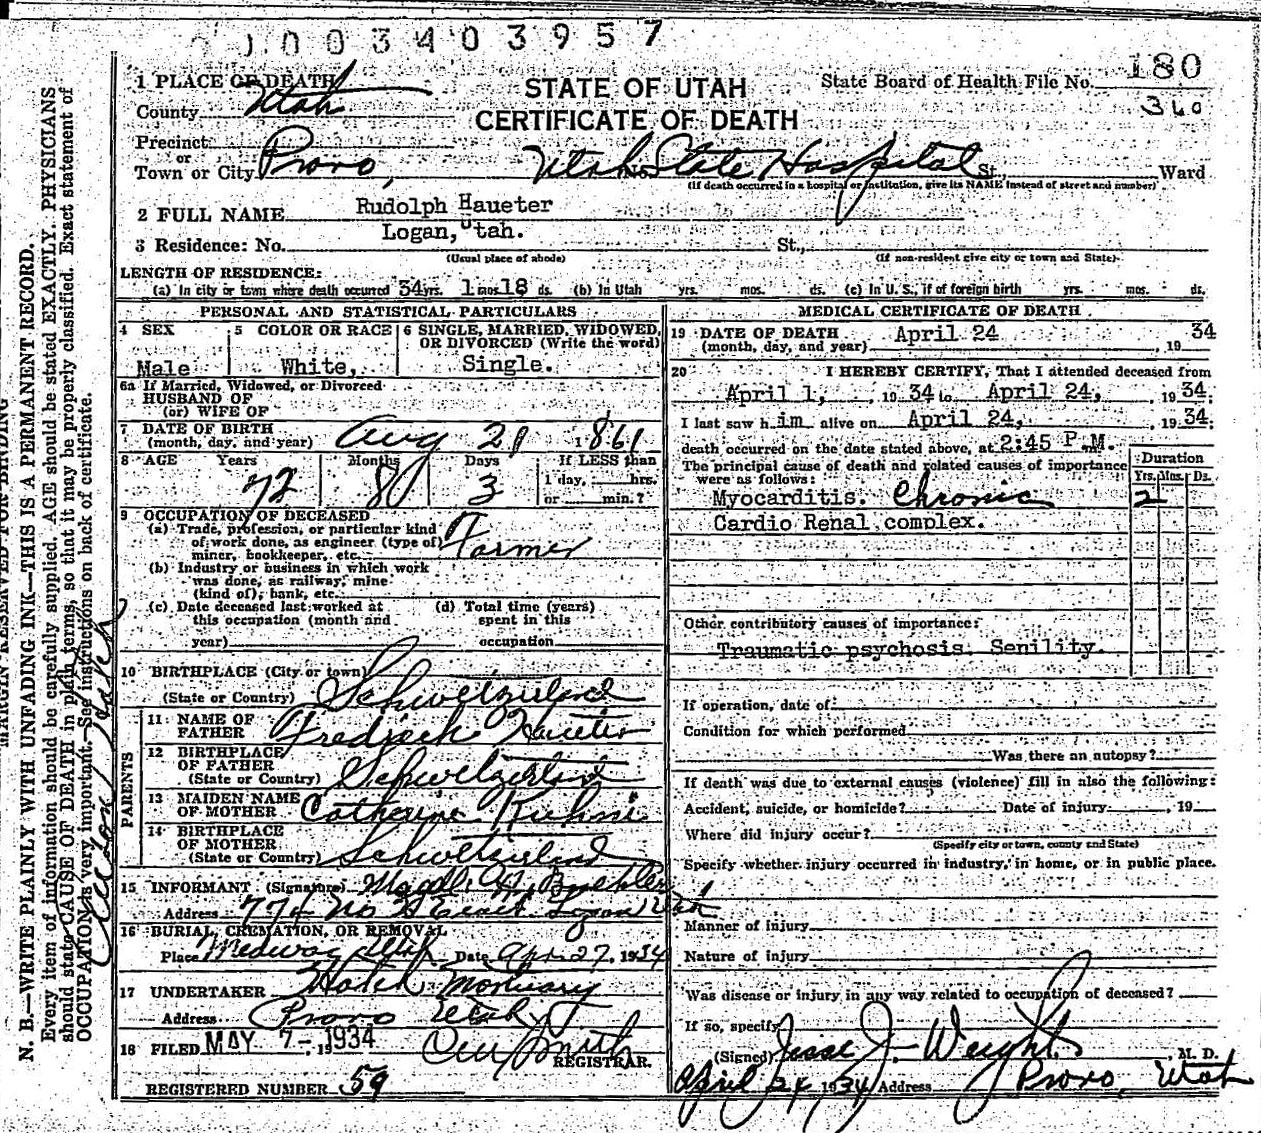 0003403957
1 PLACE OF DEATH
STATE OF UTAH
CERTIFICATE OF DEATH
State Board of Health File No. 180
360
County Utah
Precinct
or
Town or City Provo, No. Utah State Hospital St., Ward
(If death occurred in a hospital or institution, give its NAME instead of street and number)
2 FULL NAME Rudolph Haueter
3 Residence: No. Logan, Utah. St.,
(Usual place of abode) (If non-resident give city or town and State)
LENGTH OF RESIDENCE:
(a) In city or town where death occurred 34 yrs. 1 mos. 18 ds. (b) In Utah yrs. mos. ds. (c) In U. S., if of foreign birth yrs. mos. ds.
PERSONAL AND STATISTICAL PARTICULARS
4 SEX Male
5 COLOR OR RACE White,
6 SINGLE, MARRIED, WIDOWED, OR DIVORCED (Write the word) Single.
6a If Married, Widowed, or Divorced
HUSBAND OF
(or) WIFE OF
7 DATE OF BIRTH
(month, day, and year) Aug 21 1861
8 AGE Years Months Days If LESS than
72 8 3 1 day, hrs.
or min.?
9 OCCUPATION OF DECEASED
(a) Trade, profession, or particular kind
of work done, as engineer (type of)
miner, bookkeeper, etc. Farmer
(b) Industry or business in which work
was done, as railway, mine
(kind of), bank, etc.
(c) Date deceased last worked at
this occupation (month and
year)
(d) Total time (years)
spent in this
occupation
10 BIRTHPLACE (City or town)
(State or Country) Schweitzerland
PARENTS
11 NAME OF
FATHER Fredrick Haueter
12 BIRTHPLACE
OF FATHER
(State or Country) Schweitzerland
13 MAIDEN NAME
OF MOTHER Catherine Kuhni
14 BIRTHPLACE
OF MOTHER
(State or Country) Schweitzerland
15 INFORMANT (Signature) Buehler
Address 774 No Logan Utah
16 BURIAL, CREMATION, OR REMOVAL
Place Midway Utah Date Apr. 27, 1934
17 UNDERTAKER Hatch Mortuary
Address Provo Utah
18 FILED MAY 7- 1934
REGISTRAR.
REGISTERED NUMBER 59
MEDICAL CERTIFICATE OF DEATH
19 DATE OF DEATH
(month, day, and year) April 24 1934
20 I HEREBY CERTIFY, That I attended deceased from
April 1, 1934 to April 24, 1934;
I last saw him alive on April 24, 1934;
death occurred on the date stated above, at 2:45 P.M.
The principal cause of death and related causes of importance
were as follows:
Duration
Yrs. Mos. Ds.
Myocarditis. Chronic 2
Cardio Renal complex.
Other contributory causes of importance:
Traumatic psychosis. Senility.
If operation, date of
Condition for which performed
Was there an autopsy?
If death was due to external causes (violence) fill in also the following:
Accident, suicide, or homicide? Date of injury , 19
Where did injury occur?
(Specify city or town, county and State)
Specify whether injury occurred in industry, in home, or in public place.
Manner of injury
Nature of injury
Was disease or injury in any way related to occupation of deceased?
If so, specify
(Signed) Jesse J. Weight, M. D.
April 24 1934 Address Provo, Utah
MARGIN RESERVED FOR BINDING
N. B.—WRITE PLAINLY WITH UNFADING INK—THIS IS A PERMANENT RECORD.
Every item of information should be carefully supplied. AGE should be stated EXACTLY. PHYSICIANS
should state CAUSE OF DEATH in plain terms, so that it may be properly classified. Exact statement of
OCCUPATION is very important. See instructions on back of certificate.